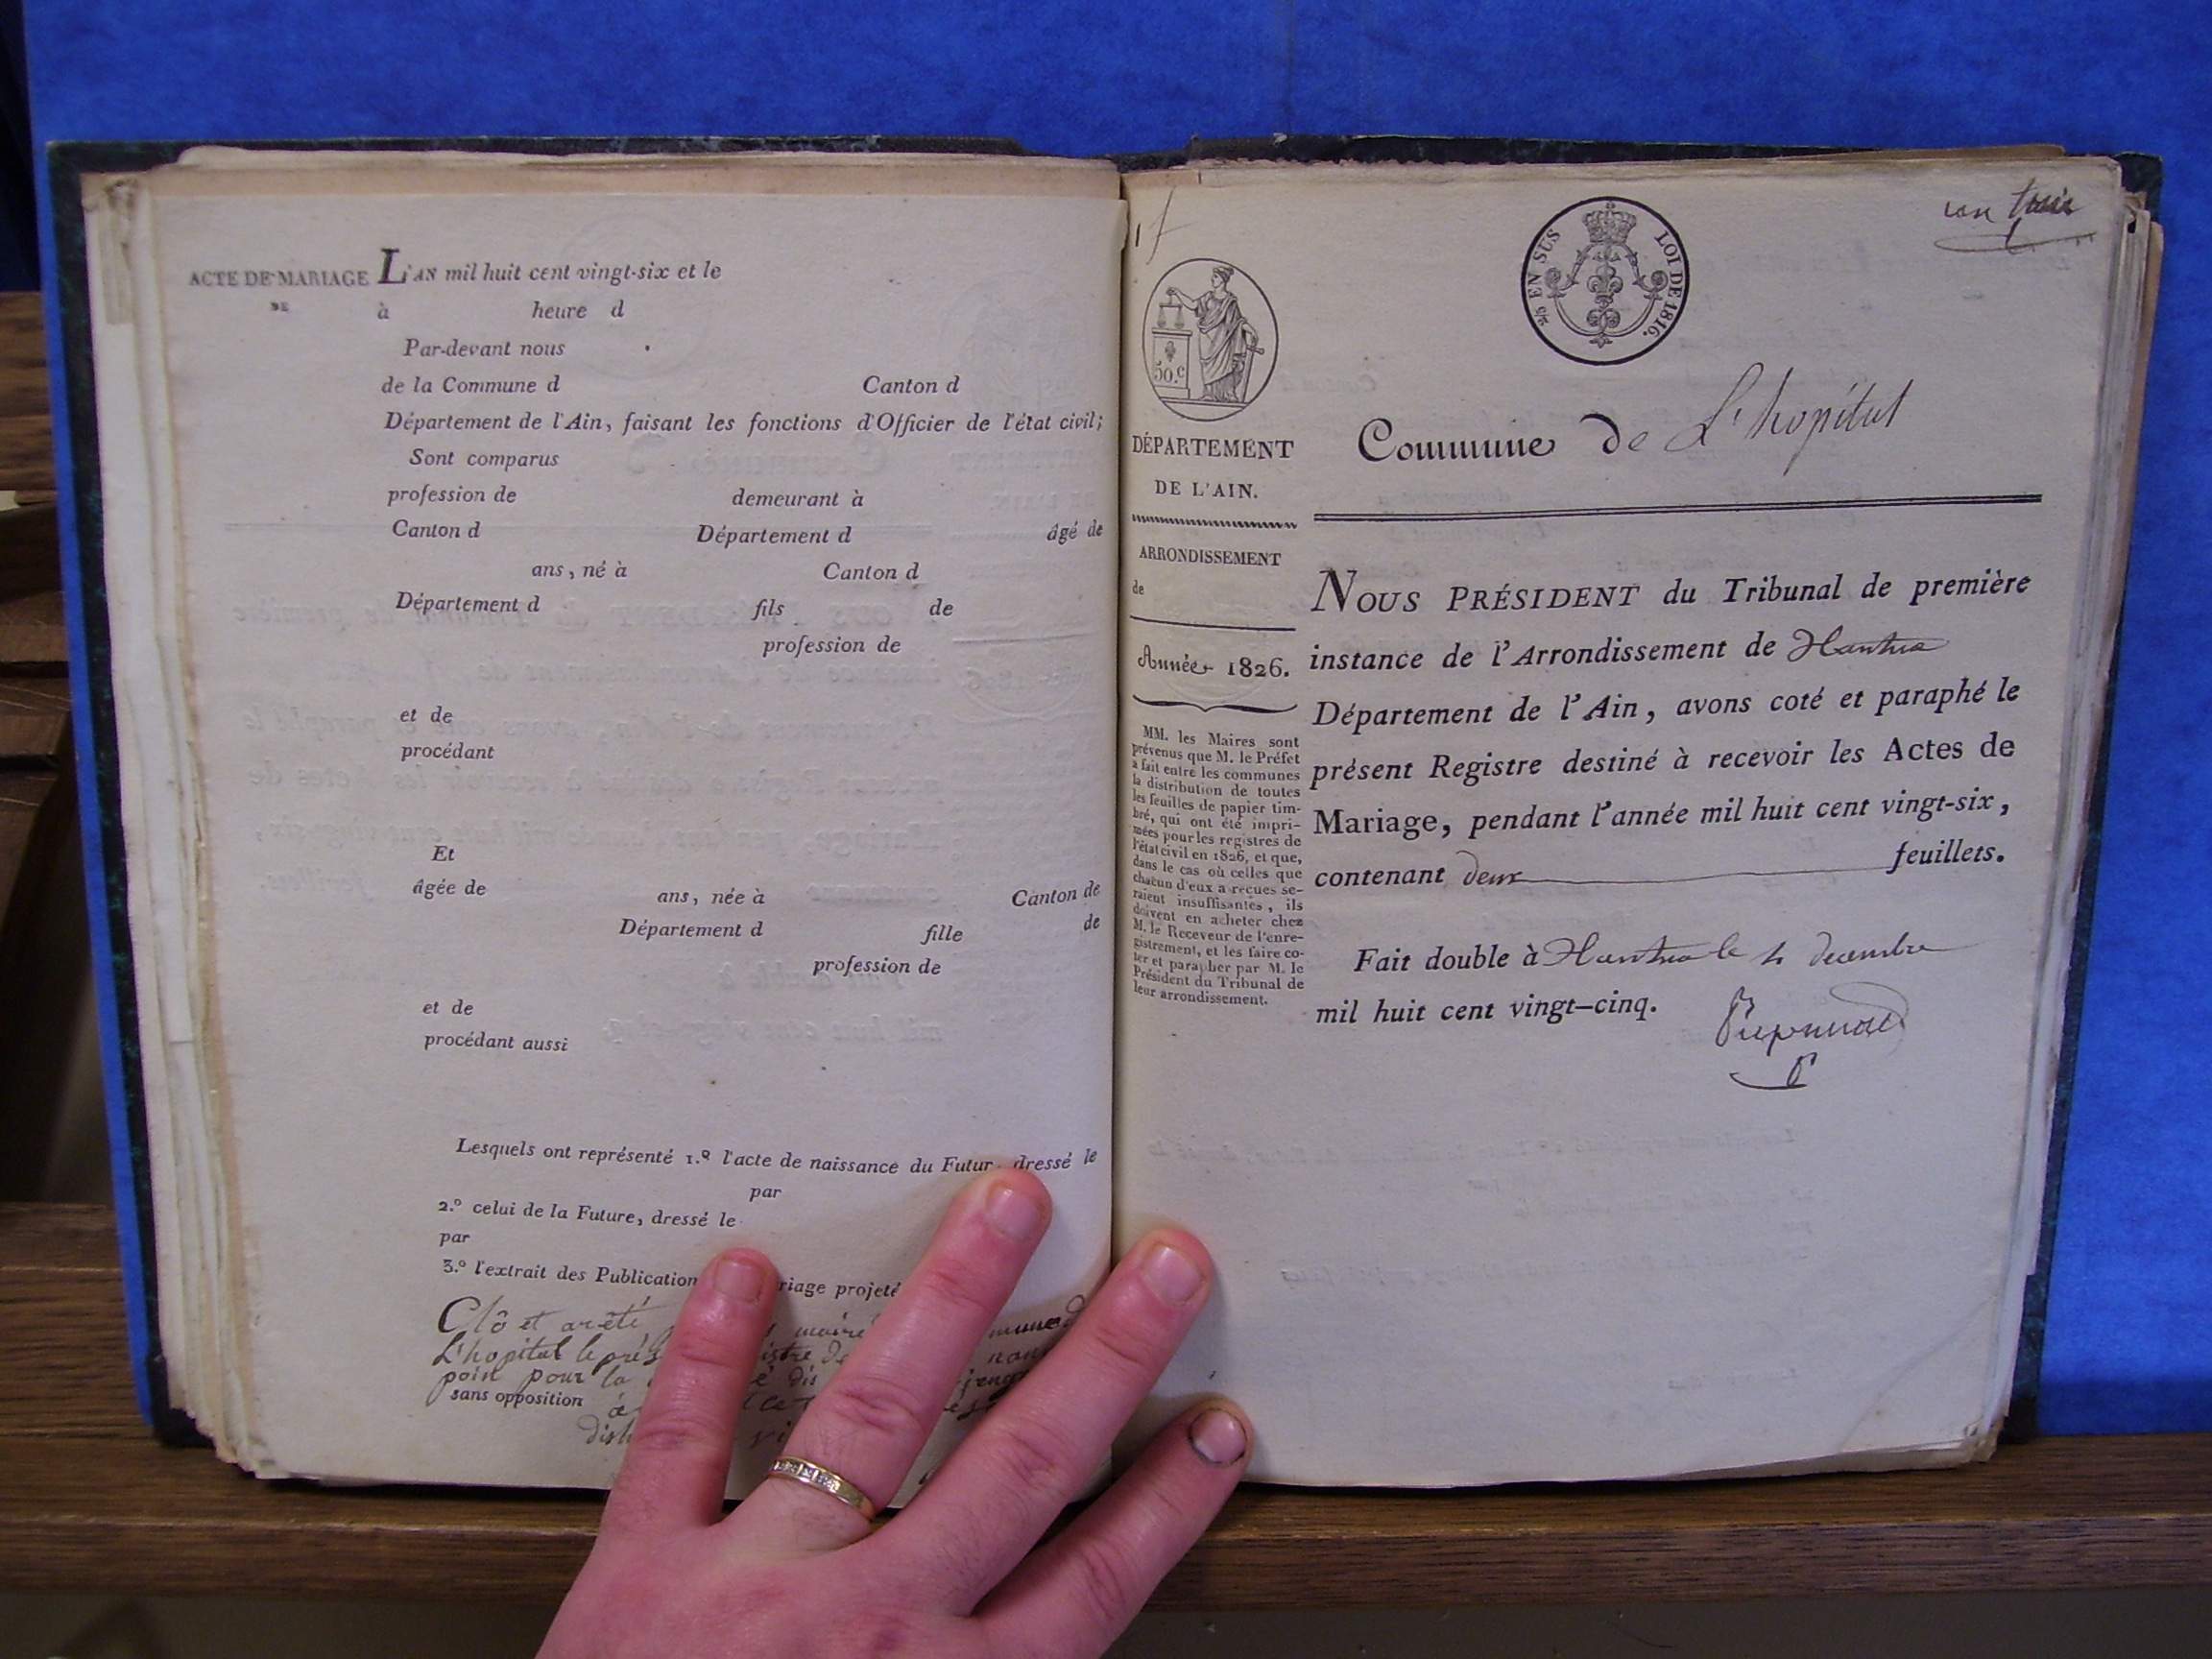 ACTE DE MARIAGE L'AN mil huit cent vingt-six et le
DE à heure d
Par-devant nous
de la Commune d Canton d
Département de l'Ain, faisant les fonctions d'Officier de l'état civil;
Sont comparus
profession de demeurant à
Canton d Département d âgé de
ans, né à Canton d
Département d fils de
profession de
et de
procédant
Et
âgée de ans, née à Canton de
Département d fille de
profession de
et de
procédant aussi
Lesquels ont représenté 1.º l'acte de naissance du Futur, dressé le
par
2.º celui de la Future, dressé le
par
3.º l'extrait des Publication riage projeté
Clô et arêté maire
L'hopital le
point pour la
sans opposition
EN SUS
LOI DE 1816.
50.c
DÉPARTEMENT
DE L'AIN.
ARRONDISSEMENT
de
Année 1826.
MM. les Maires sont
prévenus que M. le Préfet
a fait entre les communes
la distribution de toutes
les feuilles de papier tim-
bré, qui ont été impri-
mées pour les registres de
l'état civil en 1826, et que,
dans le cas où celles que
chacun d'eux a reçues se-
raient insuffisantes, ils
doivent en acheter chez
M. le Receveur de l'enre-
gistrement, et les faire co-
ter et parapher par M. le
Président du Tribunal de
leur arrondissement.
Commune de L'hopital
NOUS PRÉSIDENT du Tribunal de première
instance de l'Arrondissement de Nantua
Département de l'Ain, avons coté et paraphé le
présent Registre destiné à recevoir les Actes de
Mariage, pendant l'année mil huit cent vingt-six,
contenant deux feuillets.
Fait double à Nantua le decembre
mil huit cent vingt-cinq.